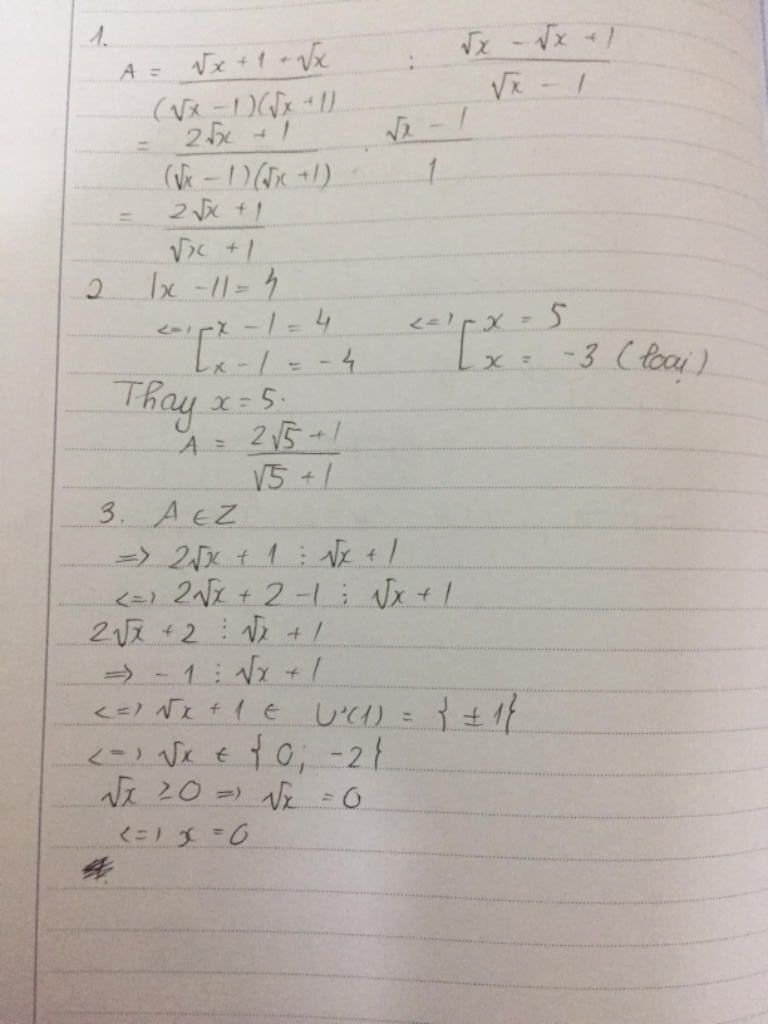 1.
A = (√x + 1 + √x)/((√x - 1)(√x + 1)) : (√x - √x + 1)/(√x - 1)
= (2√x + 1)/((√x - 1)(√x + 1)) . (√x - 1)/1
= (2√x + 1)/(√x + 1)
2 |x - 1| = 4
<=> [x - 1 = 4 <=> [x = 5
x - 1 = -4 x = -3 (loại)
Thay x = 5.
A = (2√5 + 1)/(√5 + 1)
3. A ∈ Z
=> 2√x + 1 ⋮ √x + 1
<=> 2√x + 2 - 1 ⋮ √x + 1
2√x + 2 ⋮ √x + 1
=> - 1 ⋮ √x + 1
<=> √x + 1 ∈ Ư(1) = {± 1}
<=> √x ∈ {0; -2}
√x ≥ 0 => √x = 0
<=> x = 0